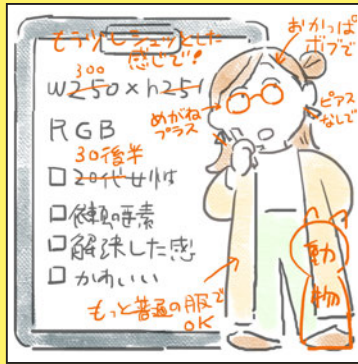 もう少しシュッとした
感じで!
300
w250×h251
RGB
30後半
□20代女性
□依頼の要素
□解決した感
□かわいい
おかっぱ
ボブで
めがね
プラス
ピアス
なしで
もっと普通の服で
OK
動
物